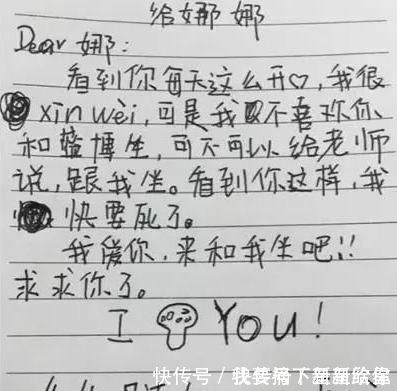 给娜娜
Dear 娜：
看到你每天这么开♡，我很
xin wèi，可是我不喜欢你
和蓝博生，可不可以给老师
说，跟我坐。看到你这样，我
快要死了。
我爱你，来和我坐吧！！
求求你了。
I You！
快传号／